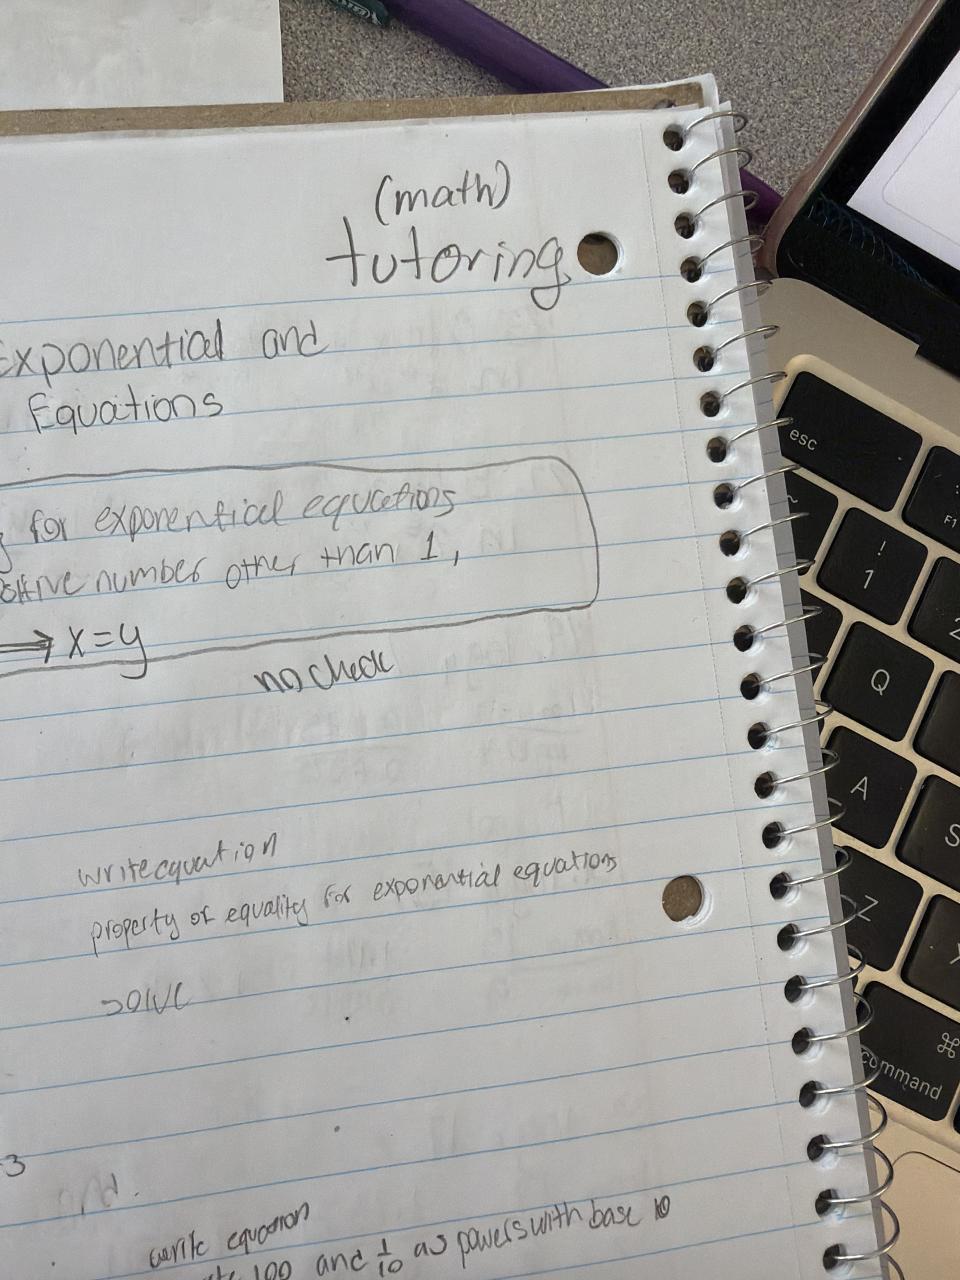 (math)
tutoring
Exponential and
Equations
for exponential equations
positive number other than 1,
⟹ x=y
no check
write equation
property of equality for exponential equations
solve
3
write equation
100 and 1/10 as powers with base 10
esc
F1
~
!
1
2
Q
A
S
Z
X
⌘
command